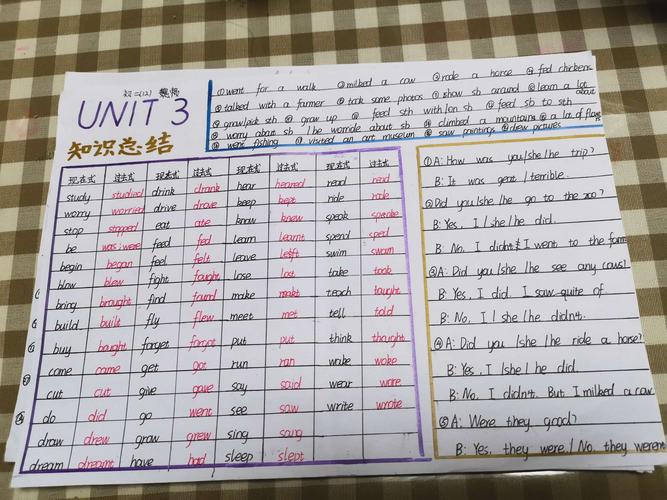 UNIT 3
知识总结
①went for a walk ②milked a cow ③rode a horse ④fed chickens
⑤talked with a farmer ⑥took some photos ⑦show sb around ⑧learn a lot about
grow/pick sth grow up feed sth with/on sh feed sb to sth
worry about sh / be worride about sb climbed a mountains a lot of
went fishing visited an art museum saw paintings drew pictures
现在式 过去式 现在式 过去式 现在式 过去式 现在式 过去式
study studied drink drank hear heared read read
worry worried drive drove keep kept ride rode
stop stopped eat ate know knew speak
be was;were feed fed learn learnt spend sped
begin began feel felt leave left swim swam
blow blew fight faught lose lost take took
bring brought find found make teach taught
build built fly flew meet met tell told
buy bought forget forgot put put think thought
come came get got run ran wake woke
cut cut give gave say said wear wore
do did go went see saw write wrote
draw drew grow grew sing sang
dream dreamt have had sleep slept
①A: How was you/she/he trip?
B: It was great / terrible.
②Did you/she/he go to the zoo?
B: Yes, I /she/he did.
B: No. I didnt I went to the farm
③A: Did you/she/he see any cows?
B: Yes, I did. I saw quite of.
B: No, I/she/he didnt.
④A: Did you/she/he ride a horse?
B: Yes, I/she/he did.
B: No. I didnt. But I milked a cow
⑤A: Were they good?
B: Yes, they were./ No they werent